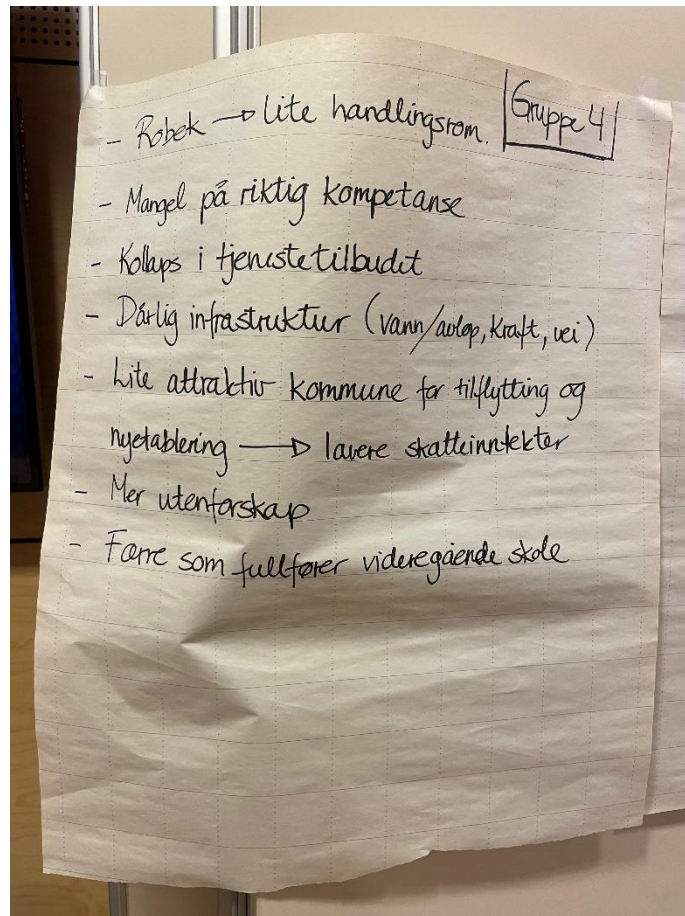 Gruppe 4
- Robek → Lite handlingsrom.
- Mangel på riktig kompetanse
- Kollaps i tjenestetilbudet
- Dårlig infrastruktur (vann/avløp, kraft, vei)
- Lite attraktiv kommune for tilflytting og
nyetablering → lavere skatteinntekter
- Mer utenforskap
- Færre som fullfører videregående skole